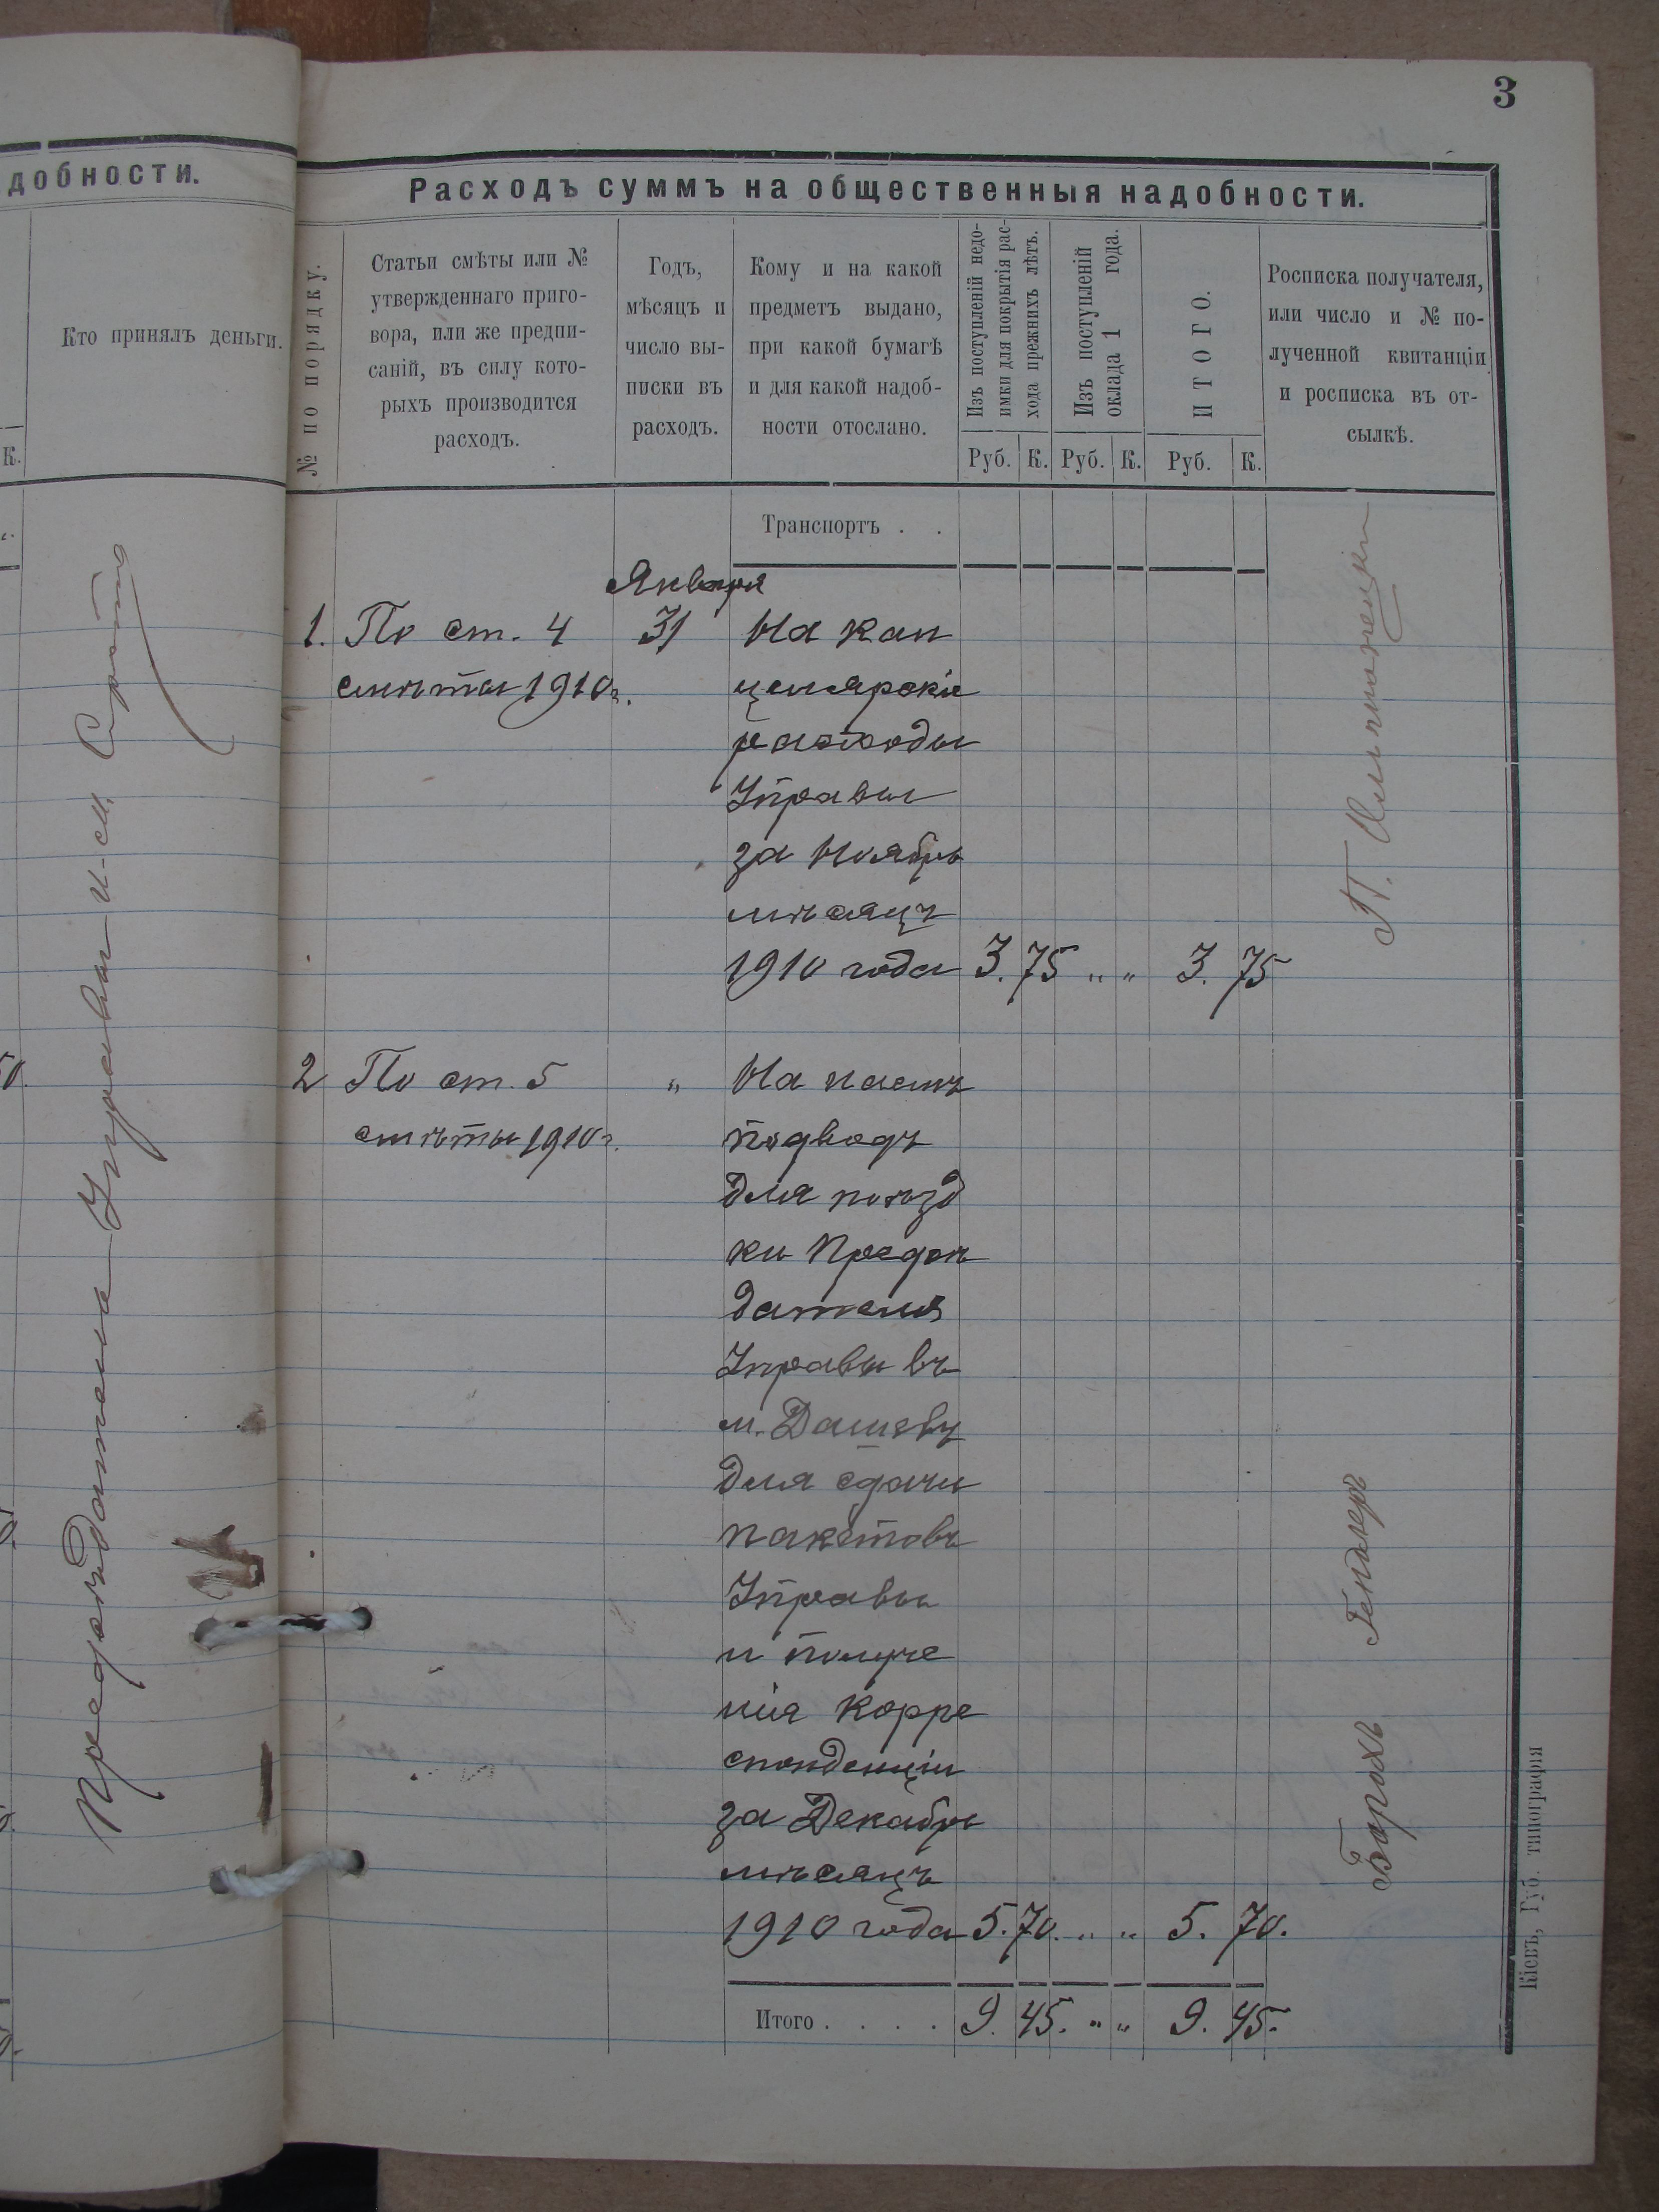 3
добности.
Кто принялъ деньги.
К.
Предсѣдатель Управы И-см.
Расходъ суммъ на общественныя надобности.
№ по порядку.
Статьи смѣты или №
утвержденнаго приго-
вора, или же предпи-
саній, въ силу кото-
рыхъ производится
расходъ.
Годъ,
мѣсяцъ и
число вы-
писки въ
расходъ.
Кому и на какой
предметъ выдано,
при какой бумагѣ
и для какой надоб-
ности отослано.
Изъ поступленій недо-
имки для покрытія рас-
хода прежнихъ лѣтъ.
Изъ поступленій
оклада 1 года.
ИТОГО.
Росписка получателя,
или число и № по-
лученной квитанціи
и росписка въ от-
сылкѣ.
Руб. К. Руб. К. Руб. К.
Транспортъ . .
Января
1. По ст. 4 31 На кан
смѣты 1910г. целярскіе
расходы
Управы
за Ноябрь
мѣсяцъ
1910 года 3. 75 " " 3. 75
2 По ст. 5 " На наемъ
смѣты 1910г. подводъ
для поѣзд
ки Предсѣ
дателя
Управы въ
м. Дашевъ
для сдачи
пакетовъ
Управы
и получе
нія Корре
спонденціи
за Декабрь
мѣсяцъ
1910 года 5. 70. " " 5. 70.
Итого . . . . 9. 45. " " 9. 45.
Борохъ Гендлеръ
Кіевъ, Губ. типографія